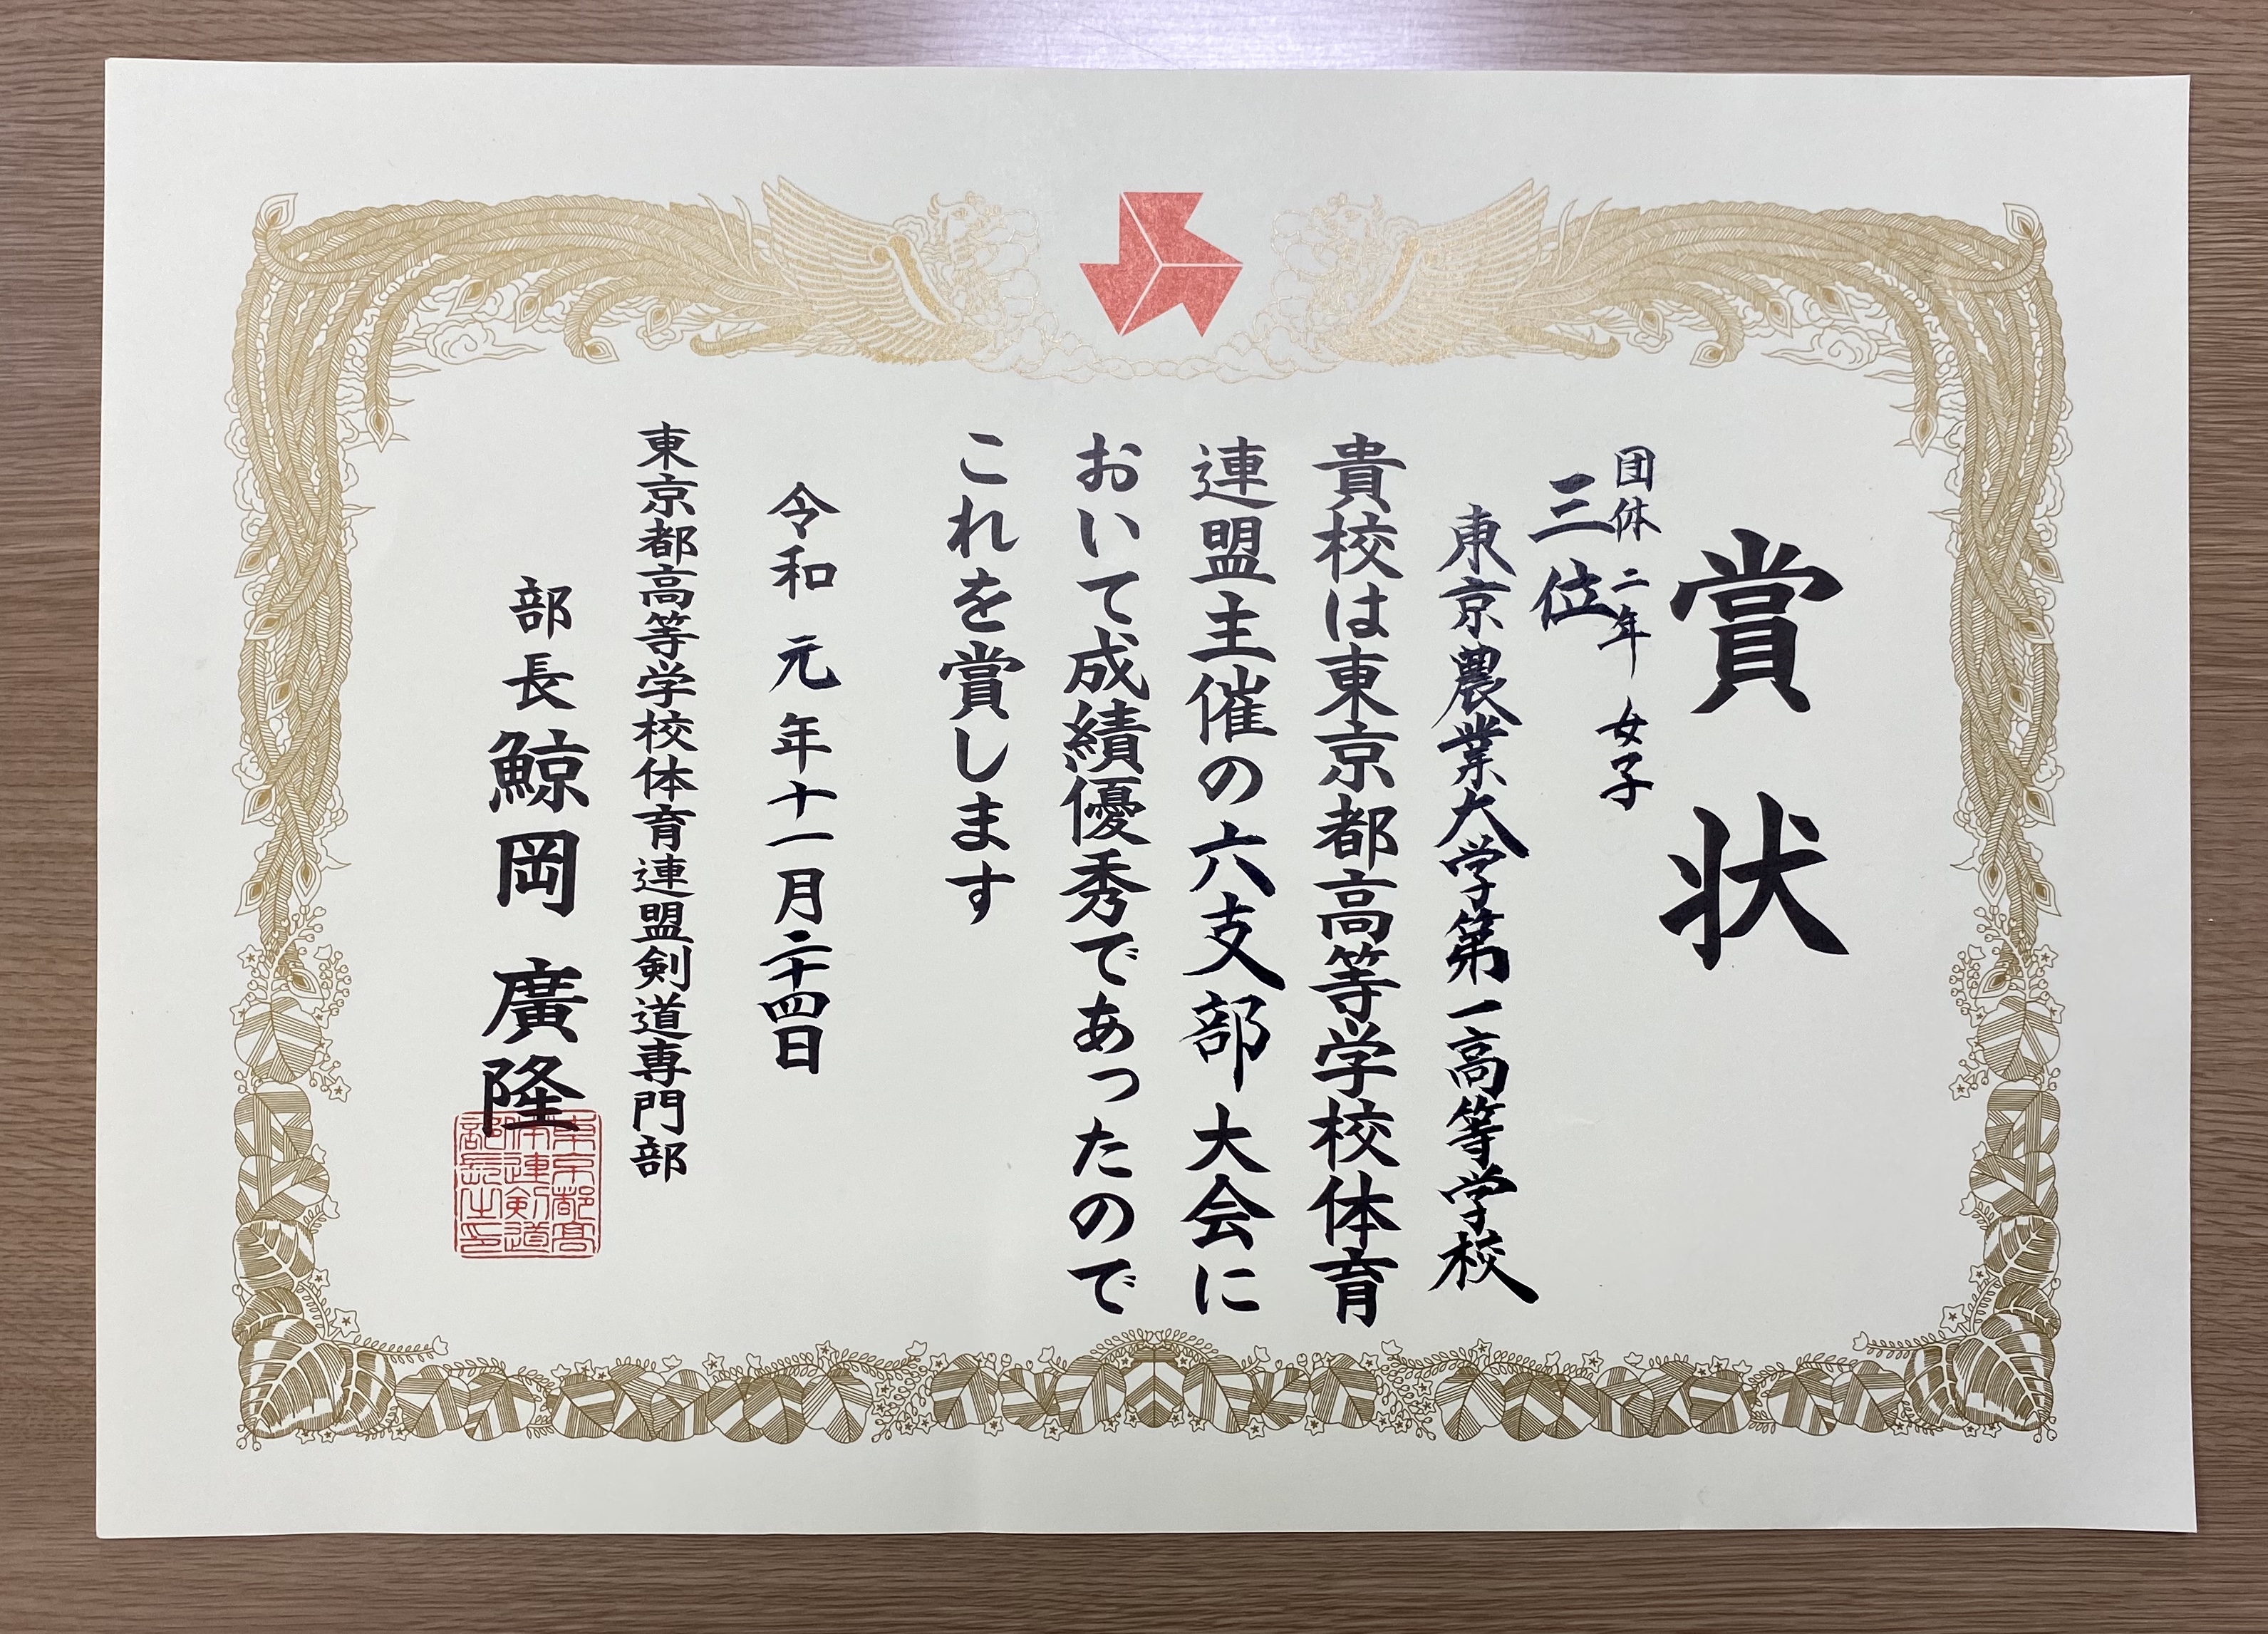 賞状
団体 二年 女子
三位
東京農業大学第一高等学校
貴校は東京都高等学校体育
連盟主催の六支部大会に
おいて成績優秀であったので
これを賞します
令和元年十一月二十四日
東京都高等学校体育連盟剣道専門部
部長 鯨岡廣隆
東京都高
体連剣道
部長之印